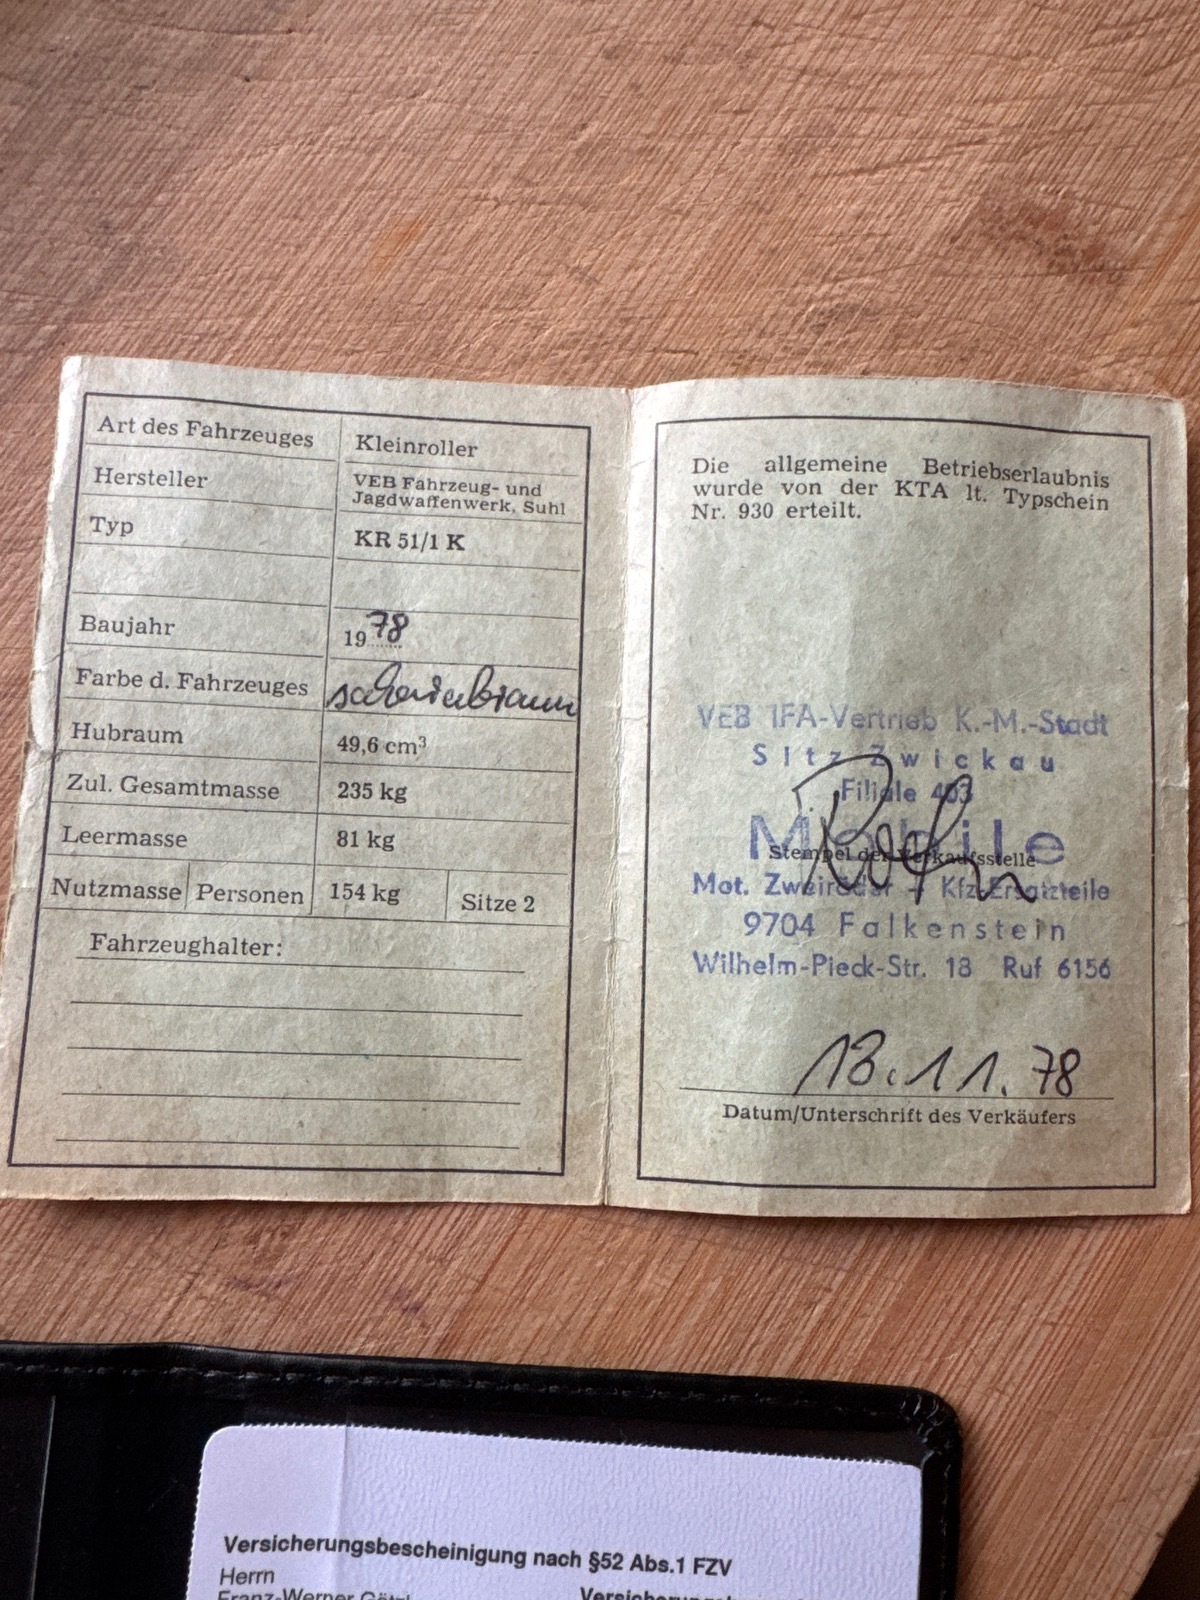 Art des Fahrzeuges Kleinroller
Hersteller VEB Fahrzeug- und
Jagdwaffenwerk, Suhl
Typ KR 51/1 K
Baujahr 1978
Farbe d. Fahrzeuges saharabraun
Hubraum 49,6 cm³
Zul. Gesamtmasse 235 kg
Leermasse 81 kg
Nutzmasse Personen 154 kg Sitze 2
Fahrzeughalter:
Die allgemeine Betriebserlaubnis
wurde von der KTA lt. Typschein
Nr. 930 erteilt.
VEB IFA-Vertrieb K.-M.-Stadt
Sitz Zwickau
Filiale 403
Mobile
Stempel der Verkaufsstelle
Mot. Zweiräder + Kfz.Ersatzteile
9704 Falkenstein
Wilhelm-Pieck-Str. 18 Ruf 6156
13.11.78
Datum/Unterschrift des Verkäufers
Versicherungsbescheinigung nach §52 Abs.1 FZV
Herrn
Franz-Werner